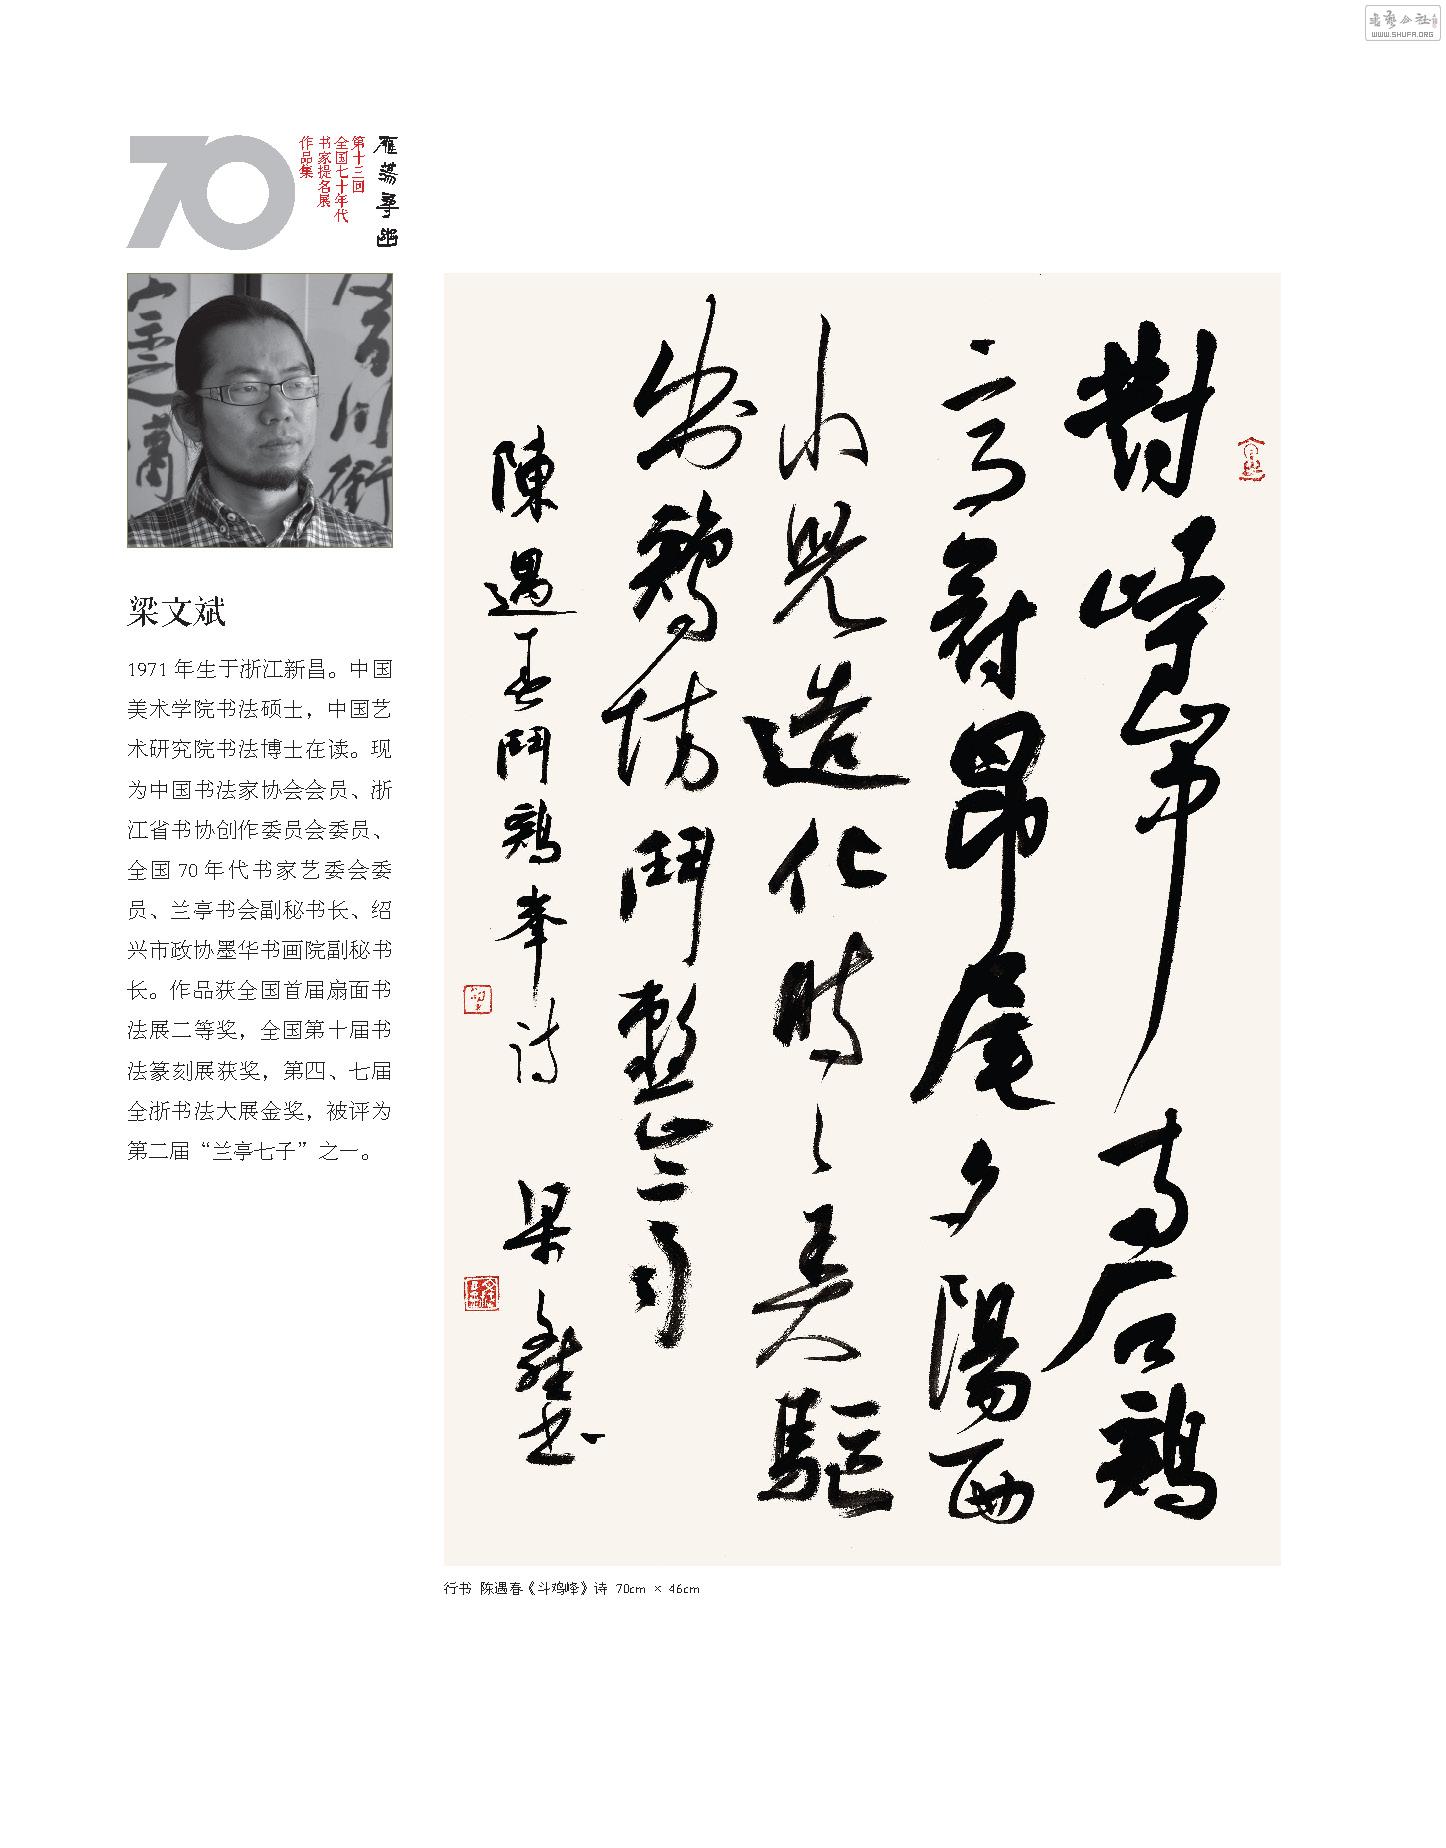 WWW.SHUFA.ORG
70
雁荡寻幽
第十三回
全国七十年代
书家提名展
作品集
梁文斌
1971年生于浙江新昌。中国
美术学院书法硕士，中国艺
术研究院书法博士在读。现
为中国书法家协会会员、浙
江省书协创作委员会委员、
全国70年代书家艺委会委
员、兰亭书会副秘书长、绍
兴市政协墨华书画院副秘书
长。作品获全国首届扇面书
法展二等奖，全国第十届书
法篆刻展获奖，第四、七届
全浙书法大展金奖，被评为
第二届“兰亭七子”之一。
對峙石鷄
高冠昂尾夕陽西
造化時驅
出鷄坊鬥
陳遇春鬥鷄峯詩 梁斌书
行书 陈遇春《斗鸡峰》诗 70cm × 46cm